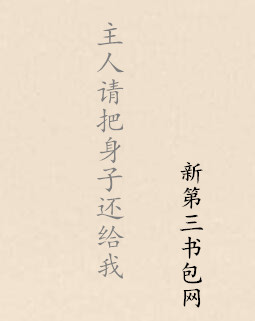 主人请把身子还给我
新第三书包网